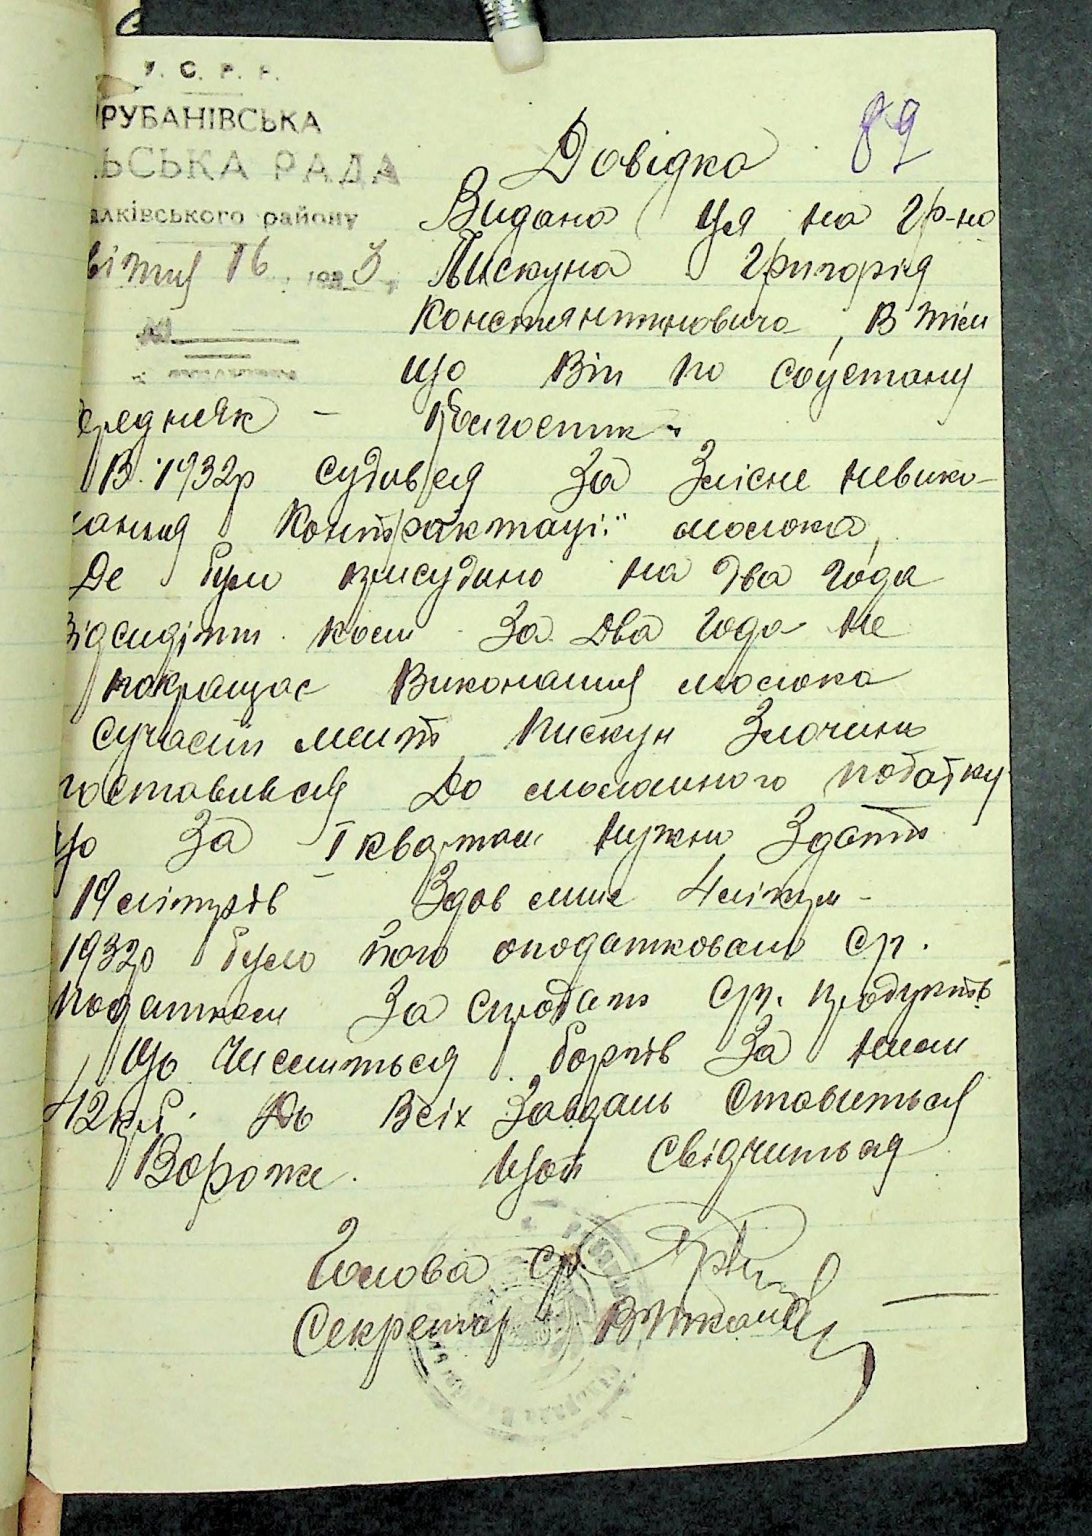 У. С. Р. Р.
РУБАНІВСЬКА
ЛЬСЬКА РАДА
алківського району
вітня 16 193 3 р
№
89
Довідка
Видана ця на гр-на
Пискуна Григорія
Константиновича, в тім
що він по соустану
середняк –
В 1932р судився за злісне невико-
нання контрактації молока,
Де було присудано на два года
відсидіти коли за два года не
покращає виконання молока
сучасний мент Пискун злочинь
поставився до молошного податку
що за I квартал нужно здать
19 літрів здав лише 4 літри -
1932р було його оподатковано ср.
податком за продаж ср. продуктів
що числиться боргів за ним
42 крб. До всіх завдань ставиться
Вороже. що й свідчиться
Голова ср
Секретар